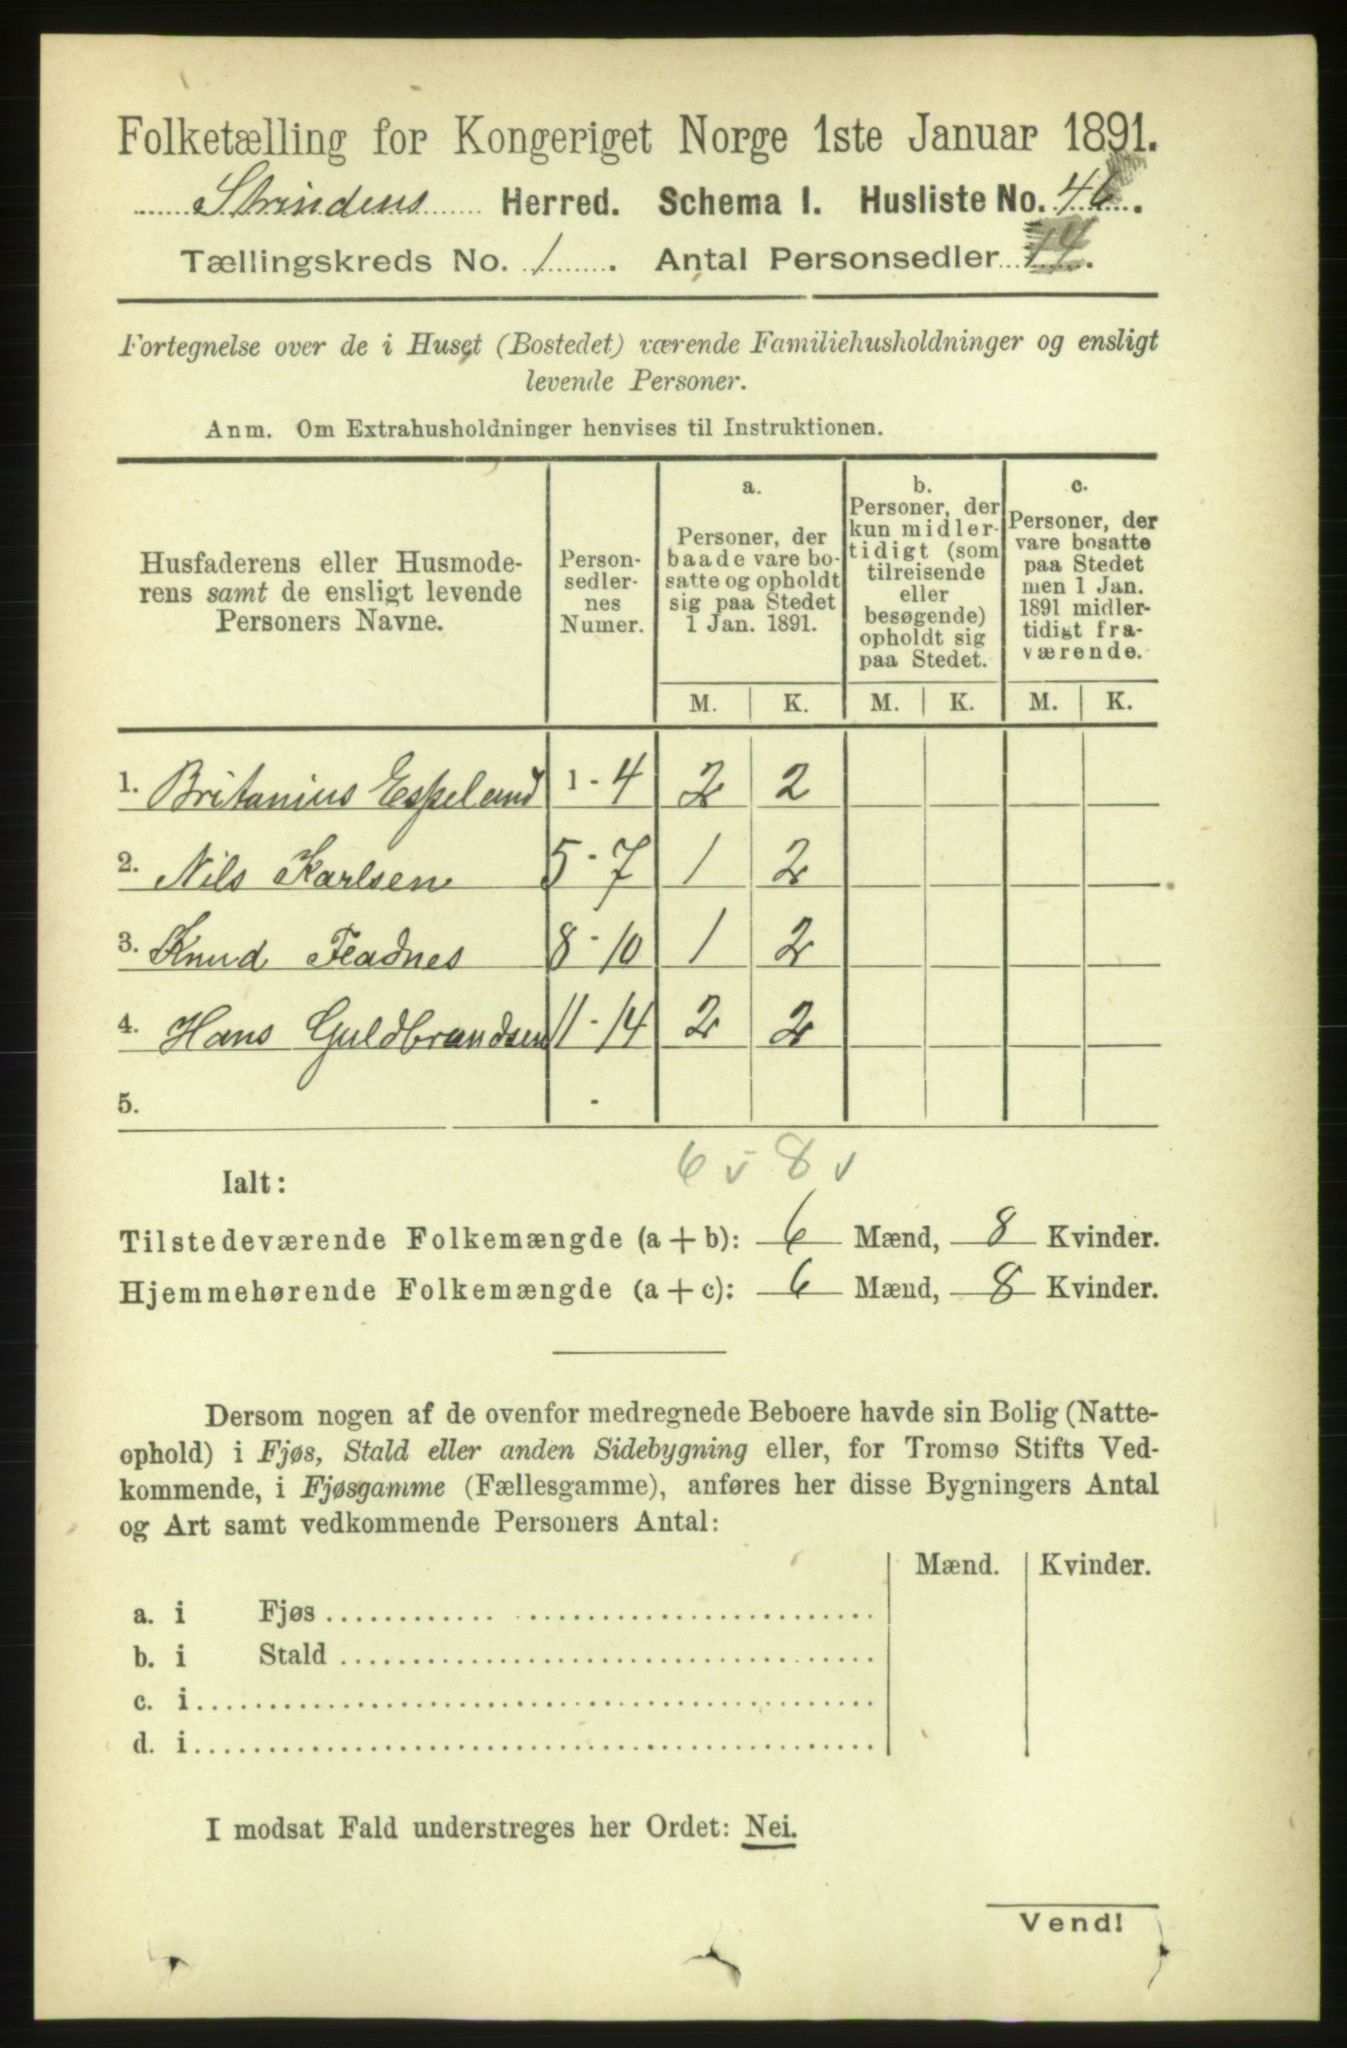 Folketælling for Kongeriget Norge 1ste Januar 1891.
Strindens Herred. Schema I. Husliste No. 46.
Tællingskreds No. 1. Antal Personsedler 14.
Fortegnelse over de i Huset (Bostedet) værende Familiehusholdninger og ensligt
levende Personer.
Anm. Om Extrahusholdninger henvises til Instruktionen.
Husfaderens eller Husmode-
rens samt de ensligt levende
Personers Navne.
Person-
sedler-
nes
Numer.
a.
Personer, der
baade vare bo-
satte og opholdt
sig paa Stedet
1 Jan. 1891.
b.
Personer, der
kun midler-
tidigt (som
tilreisende
eller
besøgende)
opholdt sig
paa Stedet.
c.
Personer, der
vare bosatte
paa Stedet
men 1 Jan.
1891 midler-
tidigt fra-
værende.
M. K. M. K. M. K.
1. Britanius Espeland 1 - 4 2 2
2. Nils Karlsen 5 - 7 1 2
3. Knud Fladnes 8 - 10 1 2
4. Hans Guldbrandsen 11 - 14 2 2
5. -
6 v 8 v
Ialt:
Tilstedeværende Folkemængde (a + b): 6 Mænd, 8 Kvinder.
Hjemmehørende Folkemængde (a + c): 6 Mænd, 8 Kvinder.
Dersom nogen af de ovenfor medregnede Beboere havde sin Bolig (Natte-
ophold) i Fjøs, Stald eller anden Sidebygning eller, for Tromsø Stifts Ved-
kommende, i Fjøsgamme (Fællesgamme), anføres her disse Bygningers Antal
og Art samt vedkommende Personers Antal:
Mænd. Kvinder.
a. i Fjøs
b. i Stald
c. i
d. i
I modsat Fald understreges her Ordet: Nei.
Vend!